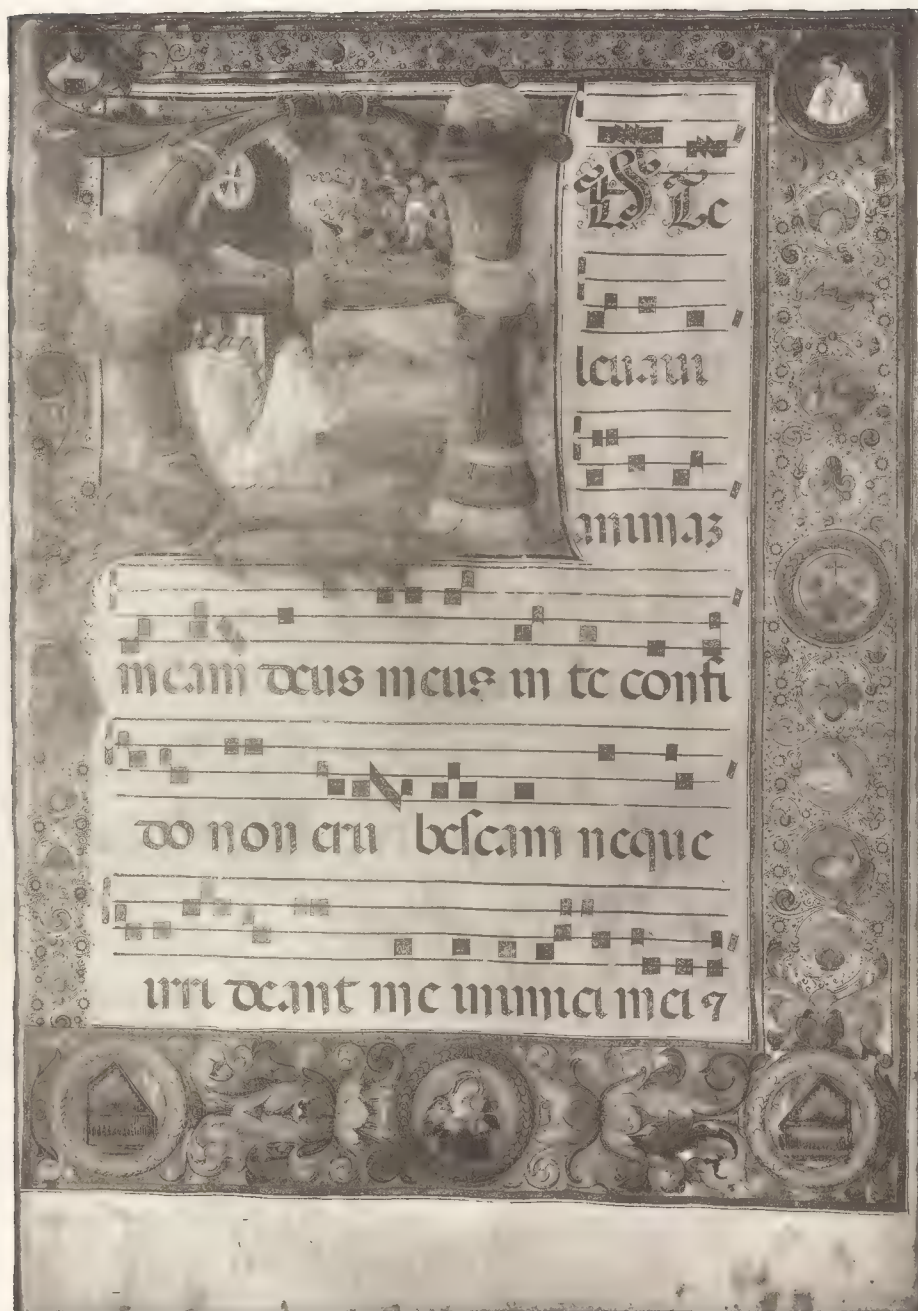 AD Te
leuaui
animaʒ
meam deus meus in te confi
do non eru bescam neque
irri deant me inimici mei ⁊